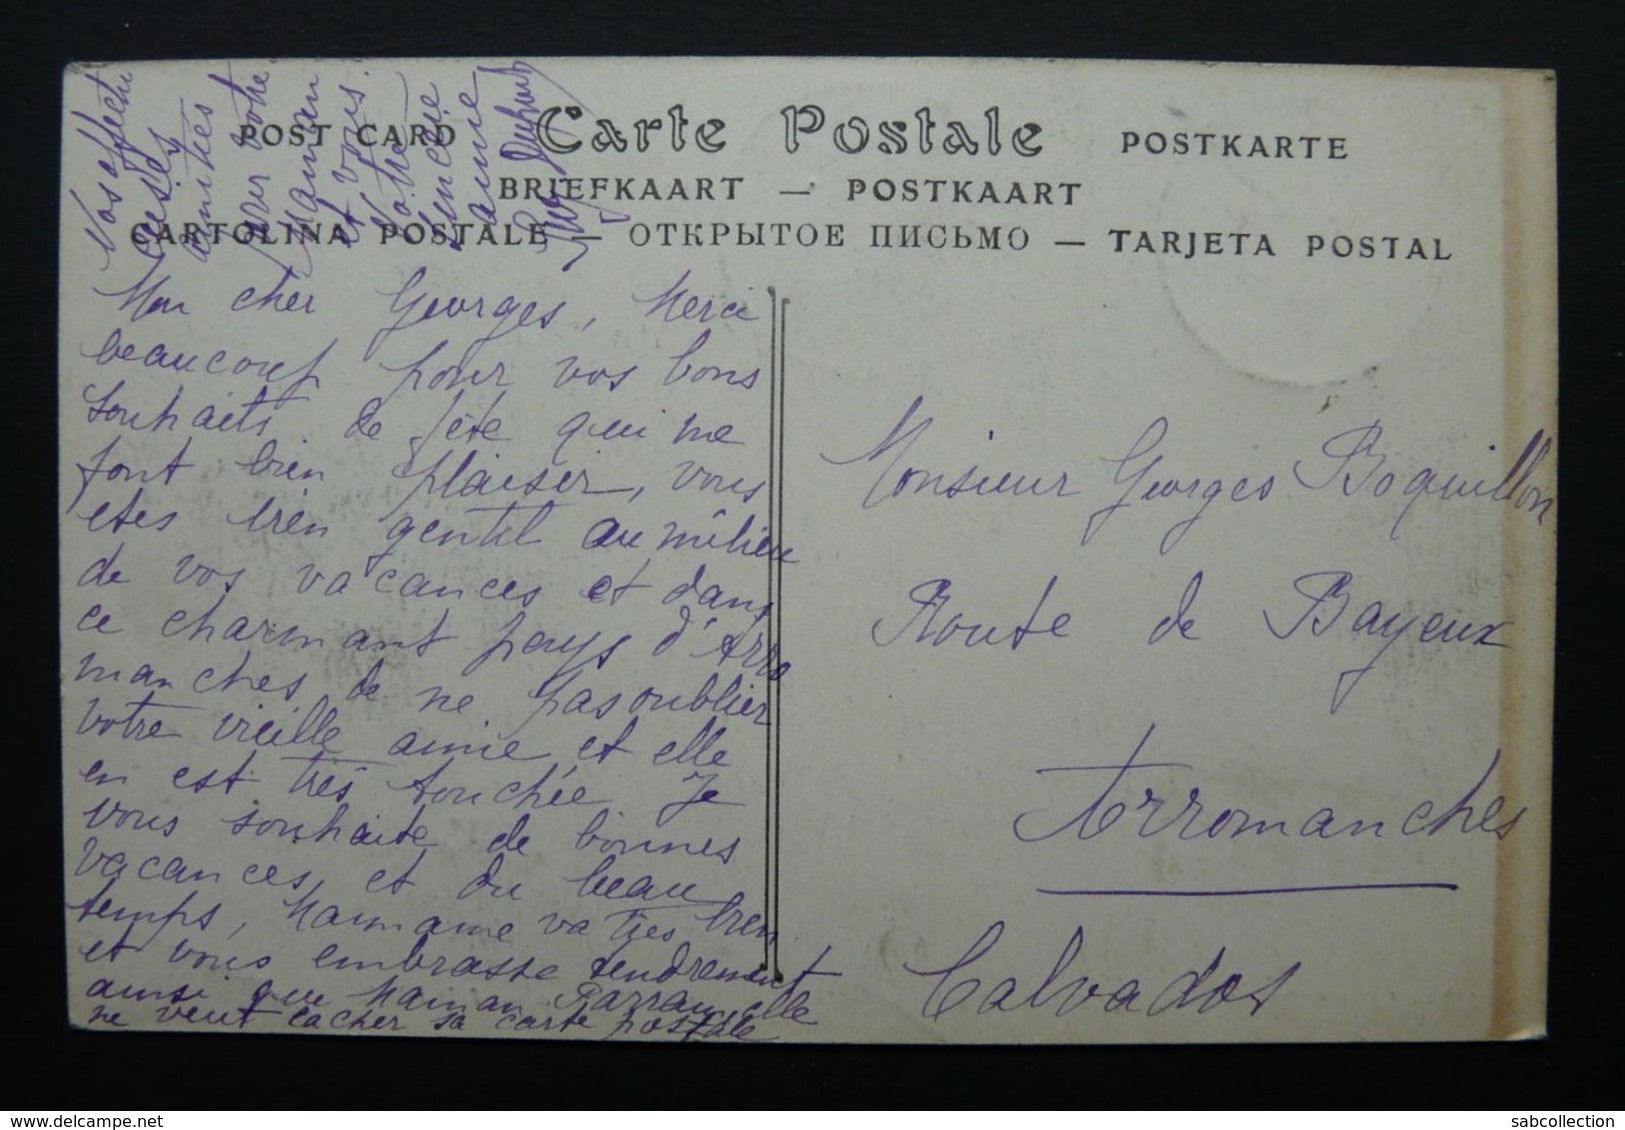 POST CARD Carte Postale POSTKARTE
BRIEFKAART — POSTKAART
CARTOLINA POSTALE — ОТКРЫТОЕ ПИСЬМО — TARJETA POSTAL
Mon cher Georges, Merci
beaucoup pour vos bons
souhaits de fête qui me
font bien plaisir, vous
etes bien gentil au milieu
de vos vacances et dans
ce charmant pays d'Arro
manches de ne pas oublier
votre vieille amie et elle
en est très touchée. Je
vous souhaite de bonnes
vacances et du beau
temps, Mamame va très bien
et vous embrasse tendrement
ainsi que Maman Parrau elle
ne veut cacher sa carte postale
Nos affectu
amitiés
pour votre
Maman
et vous.
Votre
vieille
amie
Monsieur Georges Boquillon
Route de Bayeux
Arromanches
Calvados
sabcollection